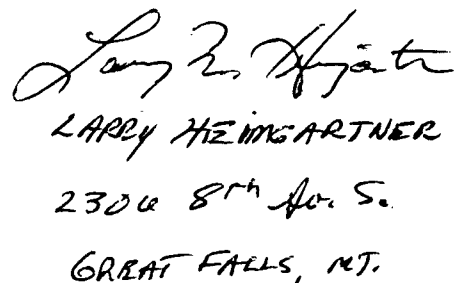 Larry M. Heimgartner
LARRY HEIMGARTNER
2306 8th Av. S.
GREAT FALLS, MT.